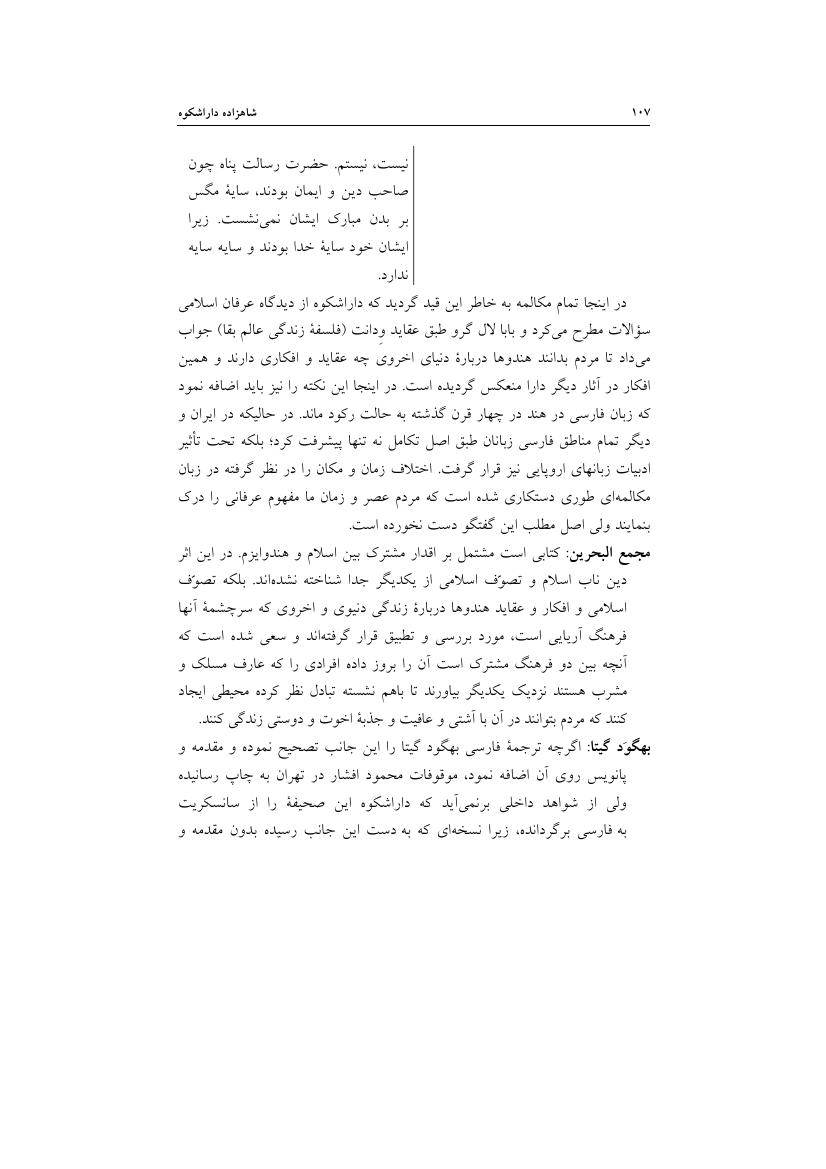 ۱۰۷ شاهزاده داراشکوه
نیست، نیستم. حضرت رسالت پناه چون
صاحب دین و ایمان بودند، سایهٔ مگس
بر بدن مبارک ایشان نمی‌نشست. زیرا
ایشان خود سایهٔ خدا بودند و سایه سایه
ندارد.
در اینجا تمام مکالمه به خاطر این قید گردید که داراشکوه از دیدگاه عرفان اسلامی
سؤالات مطرح می‌کرد و بابا لال گرو طبق عقاید وِدانت (فلسفهٔ زندگی عالم بقا) جواب
می‌داد تا مردم بدانند هندوها دربارهٔ دنیای اخروی چه عقاید و افکاری دارند و همین
افکار در آثار دیگر دارا منعکس گردیده است. در اینجا این نکته را نیز باید اضافه نمود
که زبان فارسی در هند در چهار قرن گذشته به حالت رکود ماند. در حالیکه در ایران و
دیگر تمام مناطق فارسی زبانان طبق اصل تکامل نه تنها پیشرفت کرد؛ بلکه تحت تأثیر
ادبیات زبانهای اروپایی نیز قرار گرفت. اختلاف زمان و مکان را در نظر گرفته در زبان
مکالمه‌ای طوری دستکاری شده است که مردم عصر و زمان ما مفهوم عرفانی را درک
بنمایند ولی اصل مطلب این گفتگو دست نخورده است.
مجمع البحرین: کتابی است مشتمل بر اقدار مشترک بین اسلام و هندوایزم. در این اثر
دین ناب اسلام و تصوّف اسلامی از یکدیگر جدا شناخته نشده‌اند. بلکه تصوّف
اسلامی و افکار و عقاید هندوها دربارهٔ زندگی دنیوی و اخروی که سرچشمهٔ آنها
فرهنگ آریایی است، مورد بررسی و تطبیق قرار گرفته‌اند و سعی شده است که
آنچه بین دو فرهنگ مشترک است آن را بروز داده افرادی را که عارف مسلک و
مشرب هستند نزدیک یکدیگر بیاورند تا باهم نشسته تبادل نظر کرده محیطی ایجاد
کنند که مردم بتوانند در آن با آشتی و عافیت و جذبهٔ اخوت و دوستی زندگی کنند.
بهگوَد گیتا: اگرچه ترجمهٔ فارسی بهگود گیتا را این جانب تصحیح نموده و مقدمه و
پانویس روی آن اضافه نمود، موقوفات محمود افشار در تهران به چاپ رسانیده
ولی از شواهد داخلی برنمی‌آید که داراشکوه این صحیفهٔ را از سانسکریت
به فارسی برگردانده، زیرا نسخه‌ای که به دست این جانب رسیده بدون مقدمه و